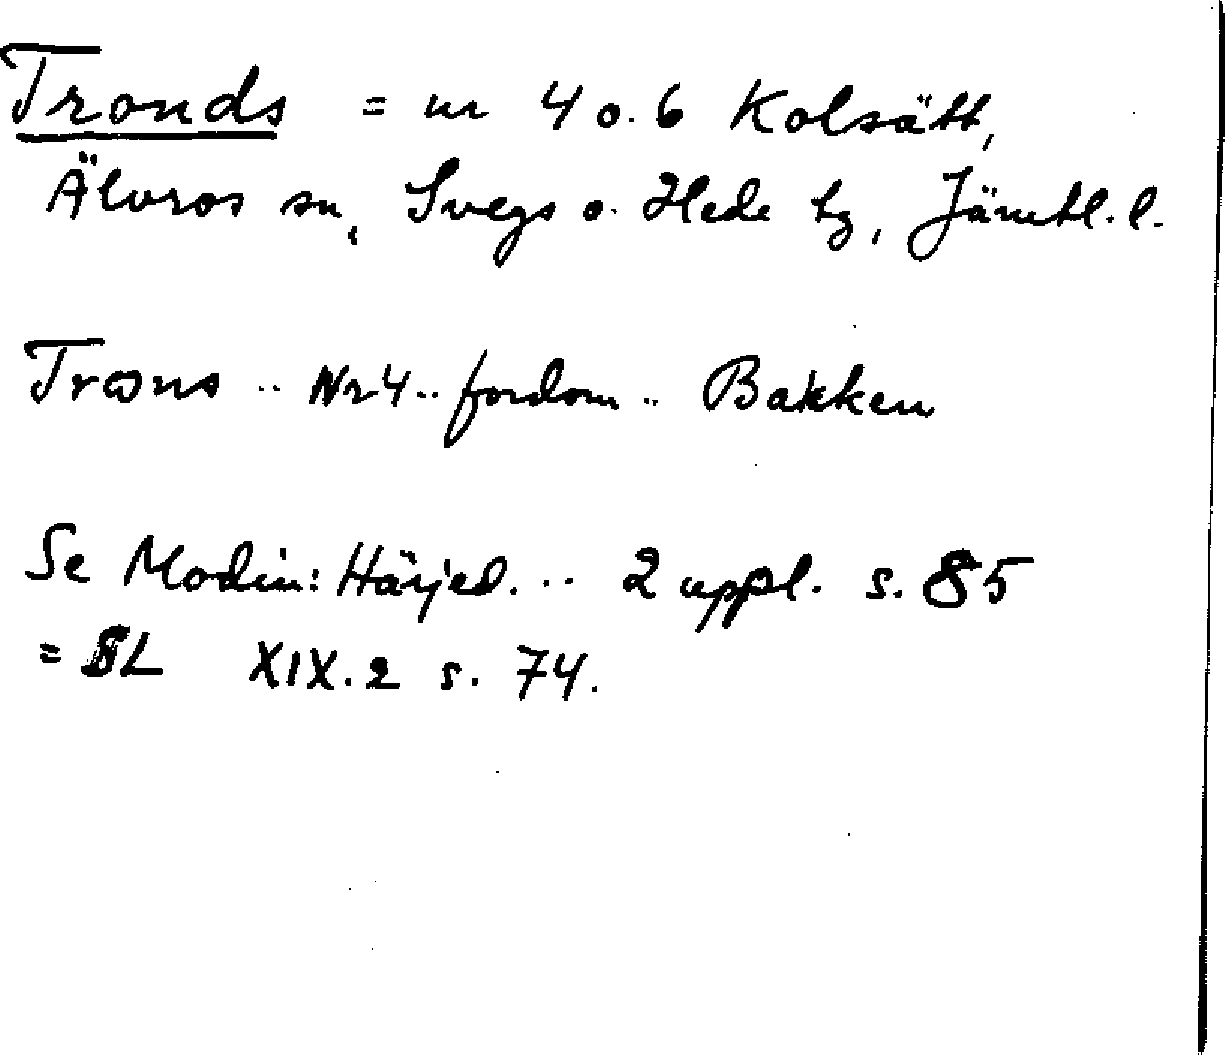 Tronds = nr 4 o. 6 Kolsätt,
Älvros sn, Svegs o. Hede tg, Jämtl. l.
Trøns .. Nr 4 .. fordom .. Bakken
Se Modin: Härjed. .. 2 uppl. s. 85
= SL XIX. 2 s. 74.